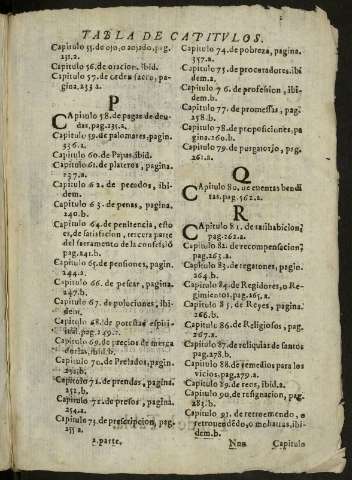 TABLA DE CAPITVLOS.
Capitulo 55. de ojo, o aojado, pag.
231.a.
Capitulo 56. de oracion. ibid.
Capitulo 57. de cedra sacro, pa-
gina, 233 a.
P
CApitulo 58. de pagas de deu-
das, pag. 131.a.
Capitulo 59. de palomares, pagin.
236.a.
Capitulo 60. de Papas, ibid.
Capitulo 61. de plateros, pagina.
237.a.
Capitulo 62. de pecados, ibi-
dem.
Capitulo 63. de penas, pagina
240.b.
Capitulo 64. de penitencia, esto
es, de satisfacion, tercera parte
del sacramento de la confesiõ
pag. 241.b.
Capitulo 65. de pensiones, pagin.
244.a.
Capitulo 66. de pescar, pagina.
247.b.
Capitulo 67. de poluciones, ibi-
dem.
Capitulo 68. de potestas espiri-
tual, pag. 249.
Capitulo 69. de precios de merca
derias, ibid.b.
Capitulo 70. de Prelados, pagin.
Capitulo 71. de prendas, pagina
252.b.
Capitulo 72. de presos, pagina
254.a.
Capitulo 73. de prescripcion, pag.
255 a.
2. parte.
Capitulo 74. de pobreza, pagina.
257.a.
Capitulo 75. de procuradores. ibi
dem.a.
Capitulo 76. de profesion, ibi-
dem.b.
Capitulo 77. de promessas, pag.
258.b.
Capitulo 78. de proposiciones, pa
gina. 260.b.
Capitulo 79. de purgatorio, pag.
261.a.
Q
CApitulo 80. de cuentas bendi
tas, pag. 562.a.
R
CApitulo 81. de
pag. 262.a.
Capitulo 82. de recompensacion,
pag. 263.a.
Capitulo 83. de regatones, pagin.
264.b.
Capitulo 84. de Regidores, o Re-
gimientos, pag. 265.a.
Capitulo 85. de Reyes, pagina.
266.b.
Capitulo 86. de Religiosos, pag.
267.a.
Capitulo 87. de reliquias de santos
pag. 278.b.
Capitulo 88. de remedios para los
vicios, pag. 279.a.
Capitulo 89. de reos, ibid.a.
Capitulo 90. de resignacion, pag.
283.b.
Capitulo 91. de retrouendo, o
retrouendēdo, o mohatras, ibi-
dem.b.
Nnn Capitulo